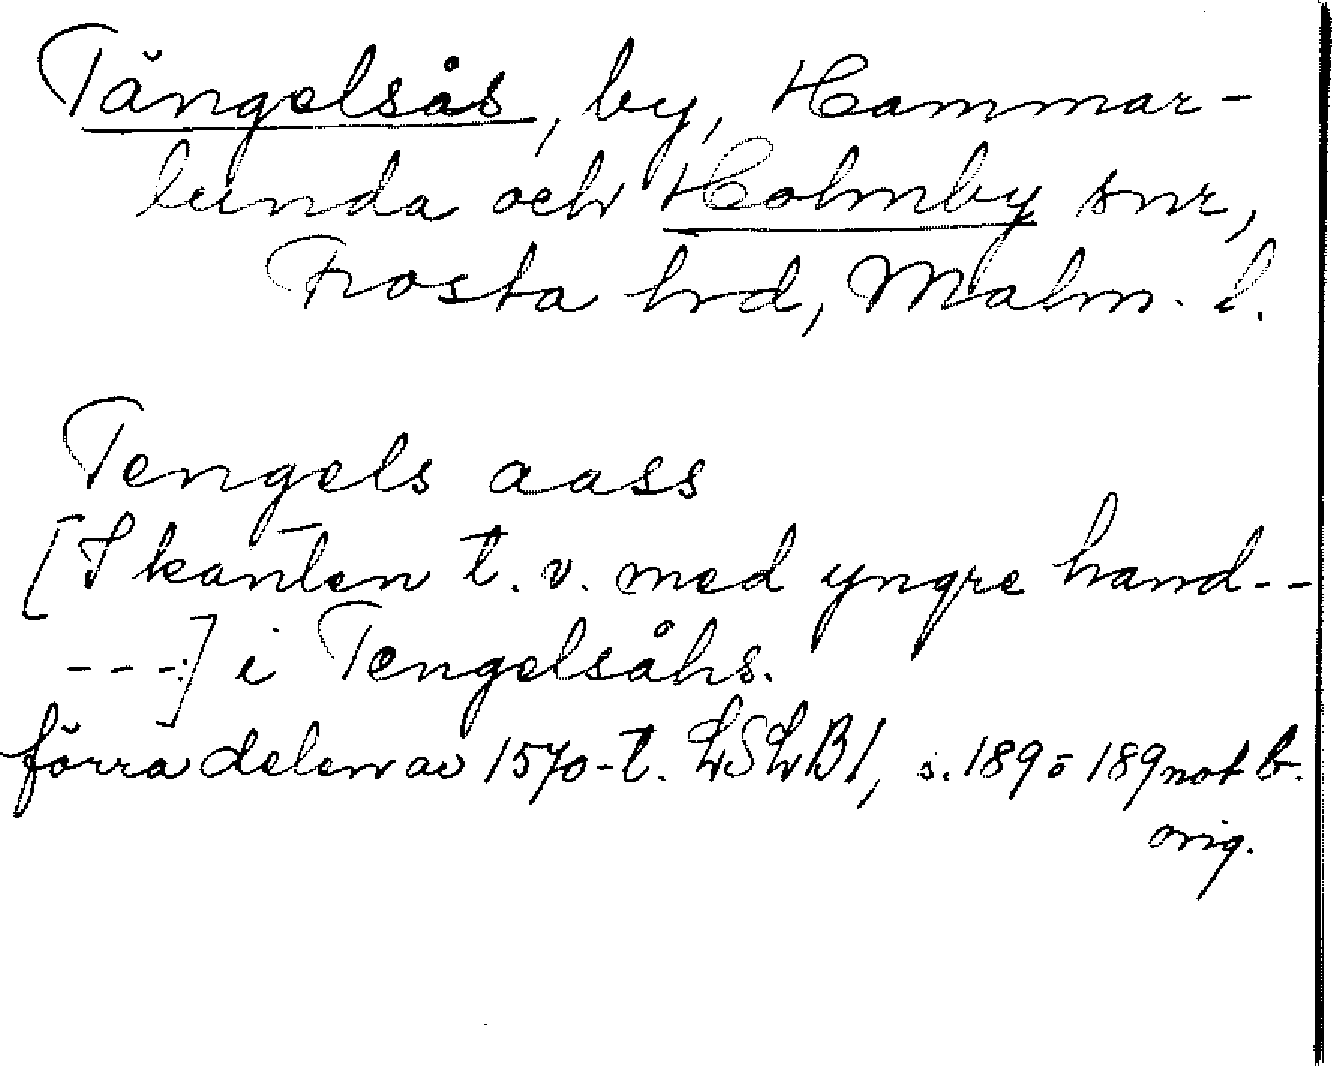 Tängelsås, by, Hammar-
lunda och Holmby snr,
Frosta hrd, Malm. l.
Tengels aass
[I kanten t. v. med yngre hand--
---:] i Tengelsåhs.
förra delen av 1570-t. LSLB1, s. 189 o 189 not b.
orig.